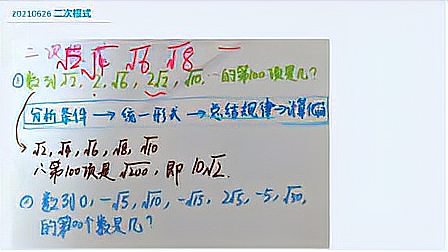 20210626 二次根式
二次
√2 √4 √6 √8
①数列√2, 2, √6, 2√2, √10, …的第100项是几?
分析条件 → 统一形式 → 总结规律 → 计算
√2, √4, √6, √8, √10
∴第100项是√200, 即10√2.
②数列0, -√5, √10, -√15, 2√5, -5, √30,
的第100个数是几?